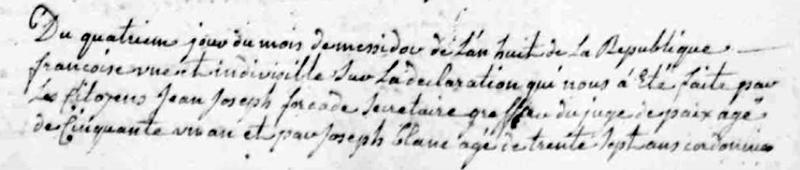 Du quatriem jour du mois de messidor de L'an huit de La Republique
francoise une et indivisible Sur La declaration qui nous á Eté faite par
Les Citoyens Jean Joseph forcade Secretaire greffier du juge de paix agé
de Cinquante un an et par Joseph blanc agé de trente Sept ans cordonnier